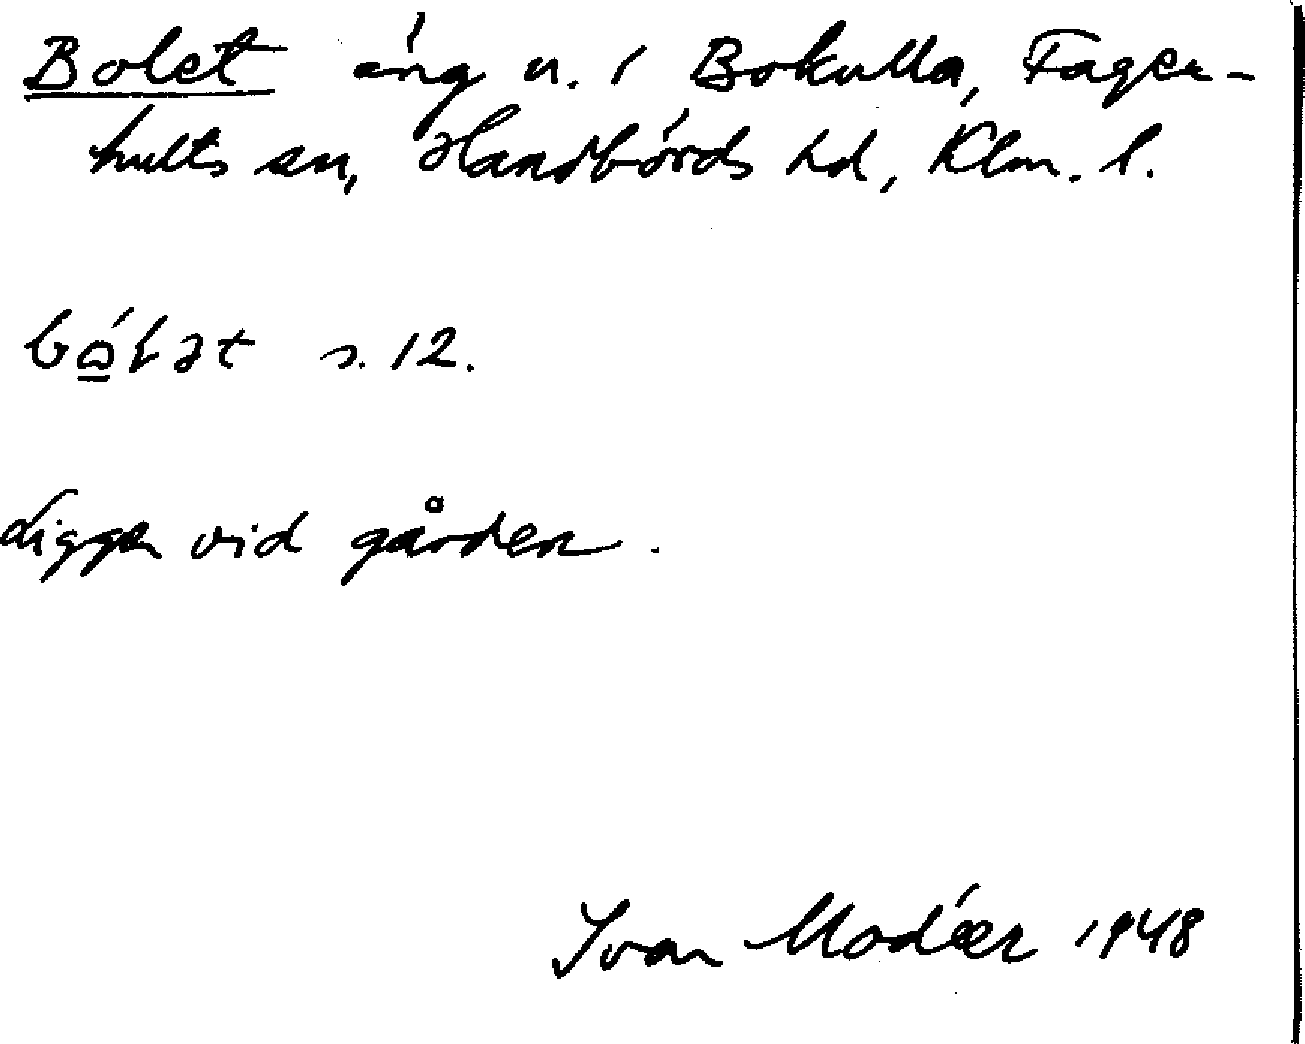 Bolet äng n. i Bokulla, Fager-
hults sn, Handbörds hd, Klm. l.
s. 12.
Ligger vid gården.
Ivar Modéer 1948